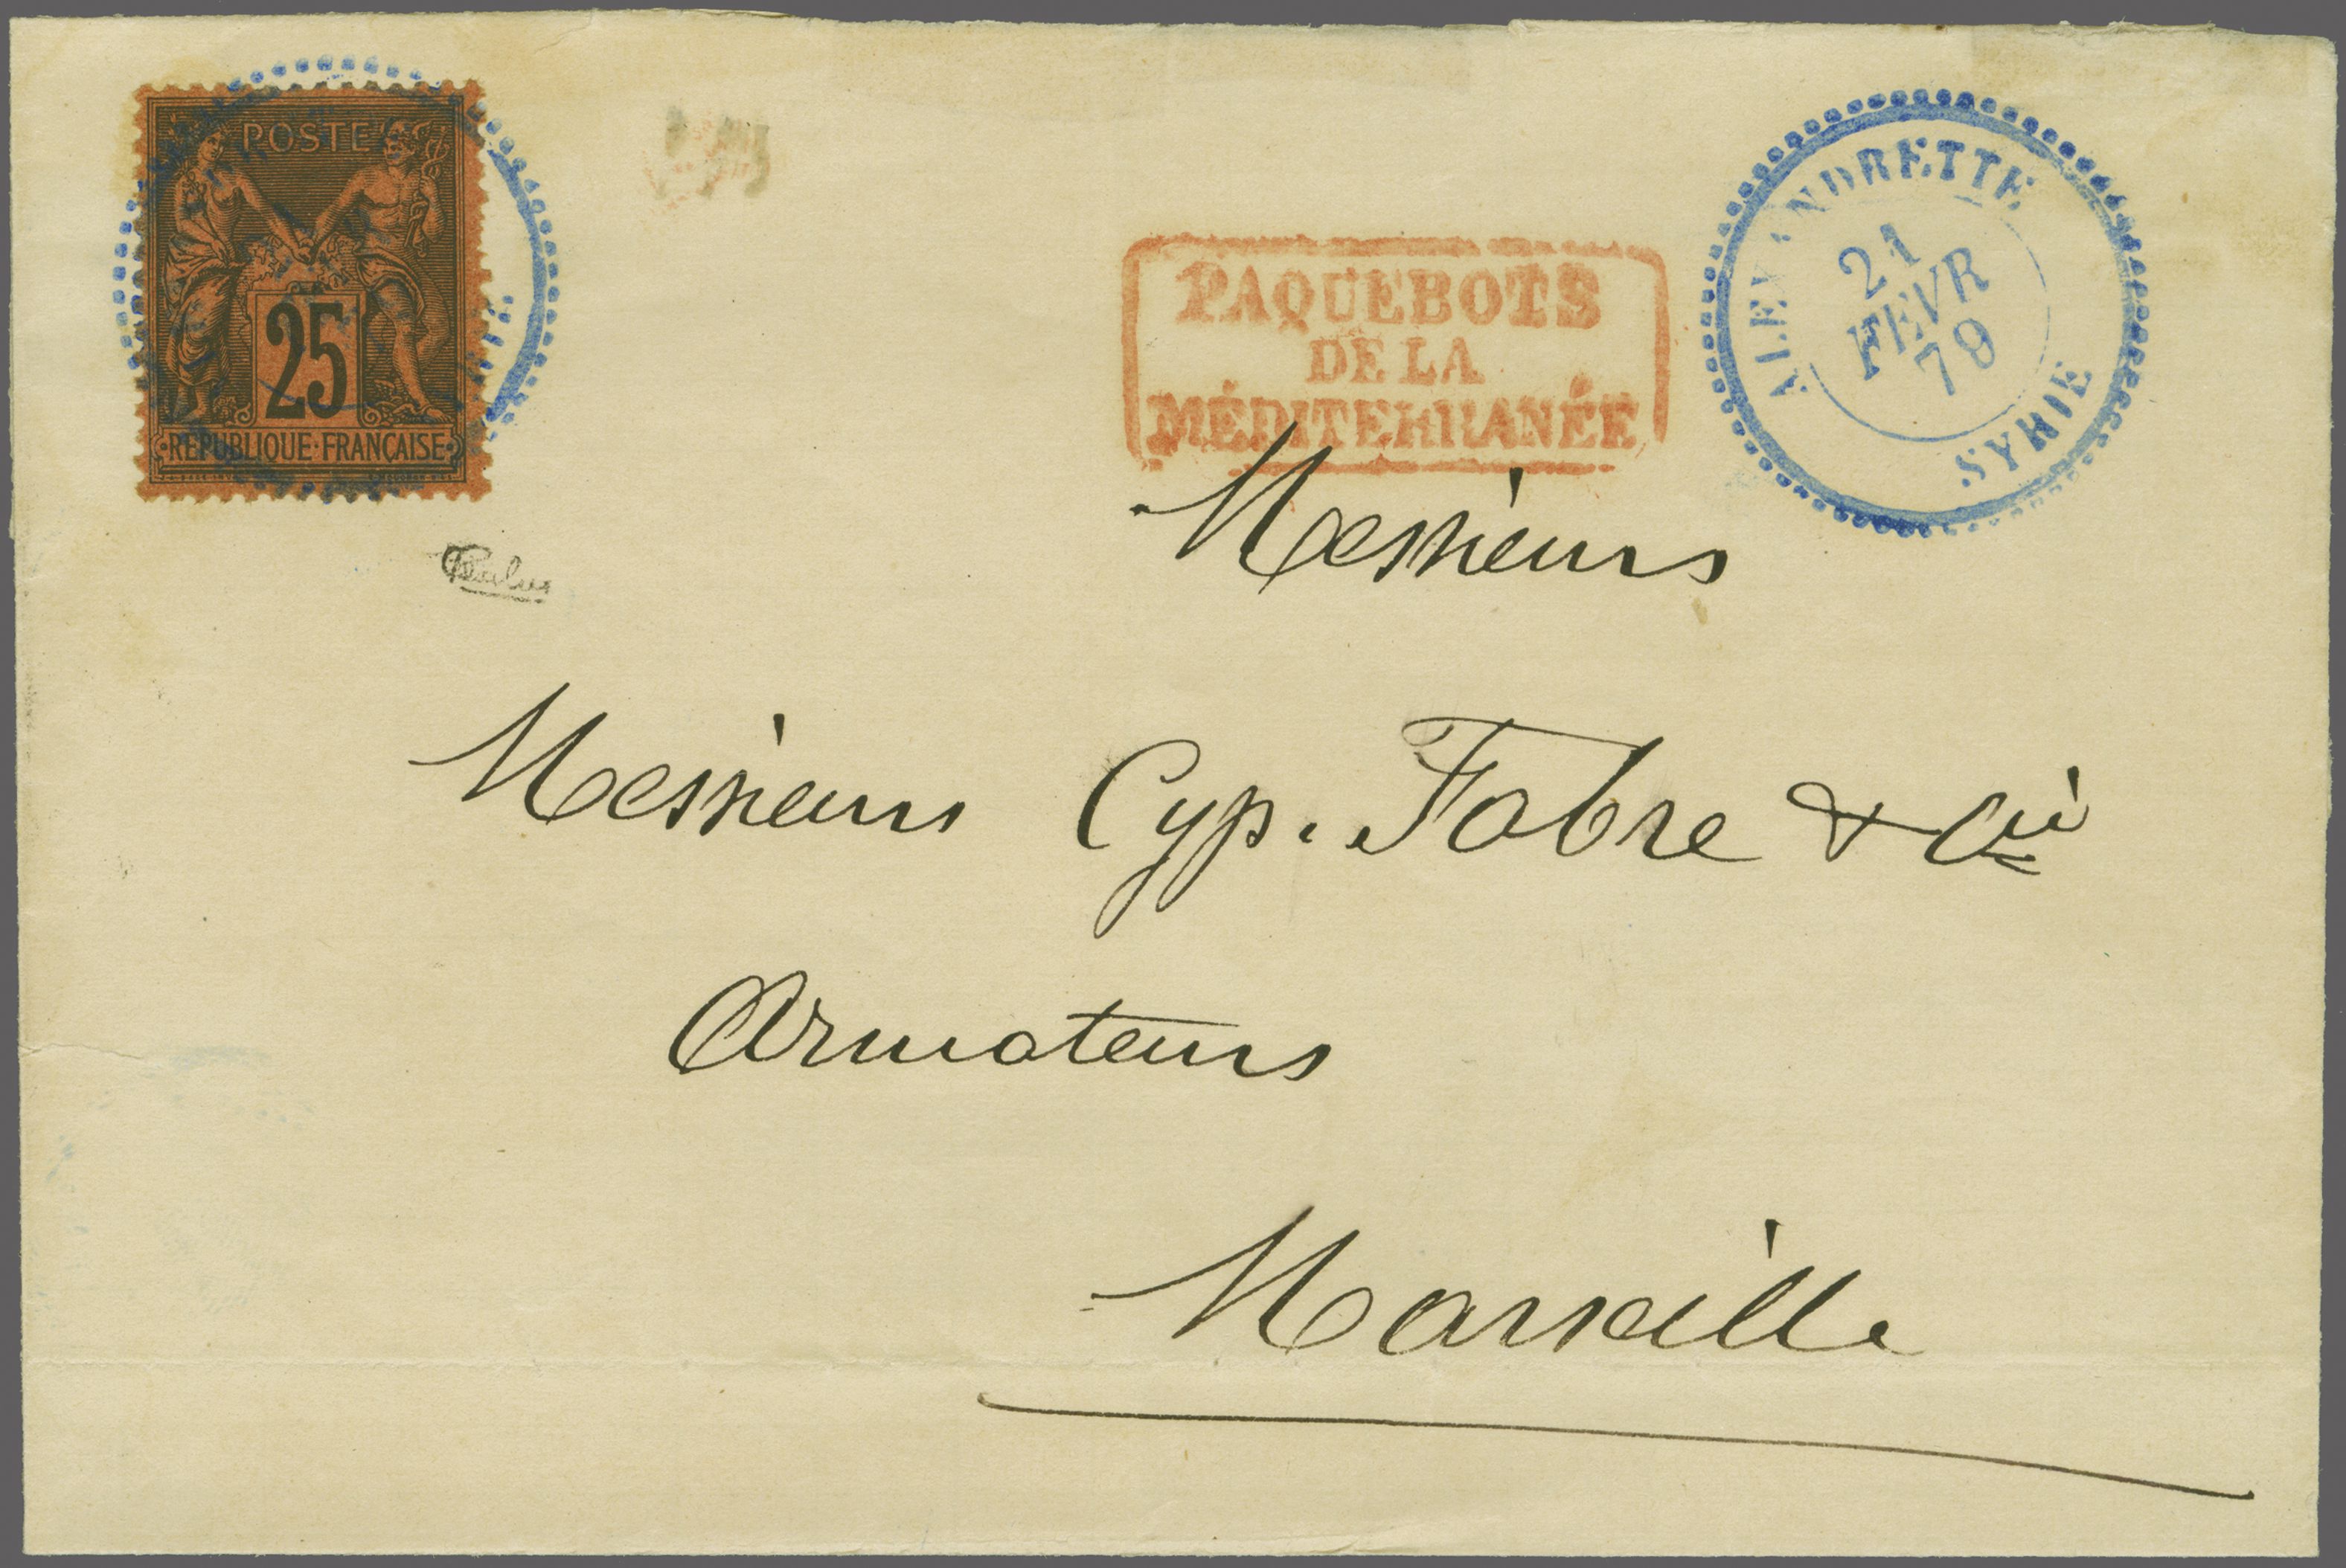 POSTE
25
REPUBLIQUE·FRANÇAISE
PAQUEBOTS
DE LA
MÉDITERRANÉE
ALEXANDRETTE
21
FEVR
79
SYRIE
Messieurs
Messieurs Cyp. Fabre & Cie
Armateurs
Marseille